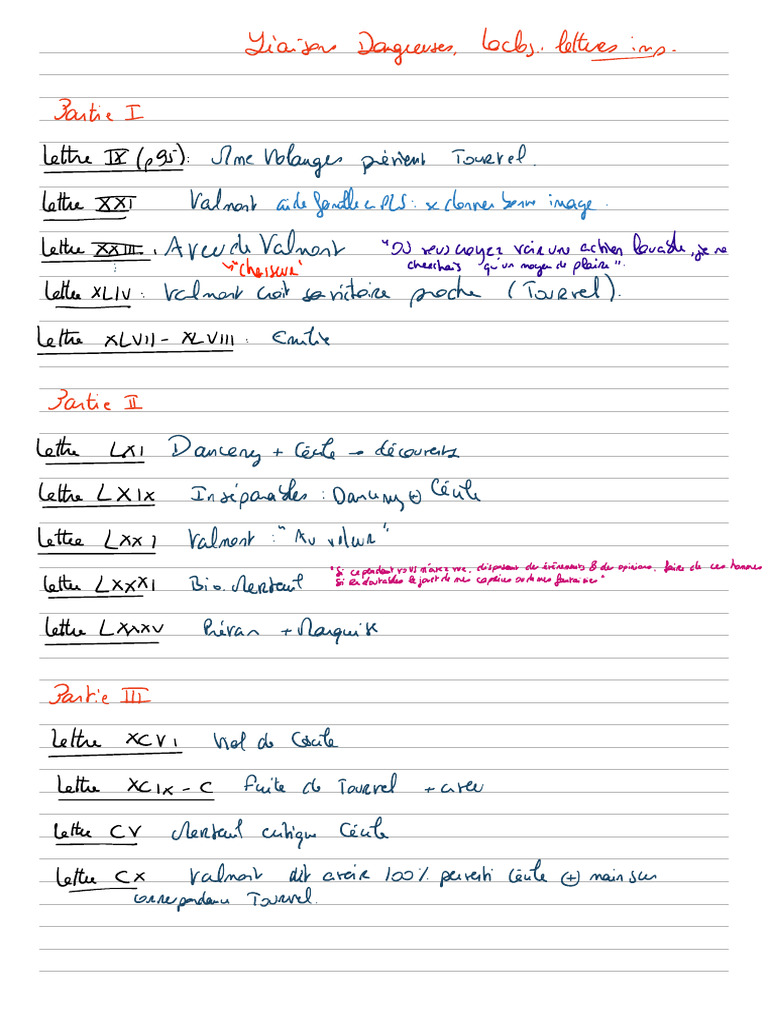 Liaisons Dangereuses, Laclos. lettres imp.
Partie I
Lettre IX (p95): Mme Volanges prévient Tourvel.
Lettre XXI Valmont aide famille en PLS: se donner bonne image.
Lettre XXIII. Aveu de Valmont "Où vous croyez voir une action louable, je ne
"chasseur" cherchais qu'un moyen de plaire".
Lettre XLIV: Valmont croit sa victoire proche (Tourvel).
Lettre XLVII - XLVIII: Emilie
Partie II
Lettre LXI Danceny + Cécile → découverts
Lettre LXIX Inséparables: Danceny ⊕ Cécile
Lettre LXXI Valmont: "Au voleur"
"Si cependant vous m'avez vue, disposant des événements & des opinions, faire de ces hommes
Lettre LXXXI Bio. Merteuil si redoutables le jouet de mes caprices ou de mes fantaisies"
Lettre LXXXV Prévan + Marquise
Partie III
Lettre XCVI Viol de Cécile
Lettre XCIX - C Fuite de Tourvel + aveu
Lettre CV Merteuil critique Cécile
Lettre CX Valmont dit avoir 100% perverti Cécile ⊕ main sur
correspondance Tourvel.